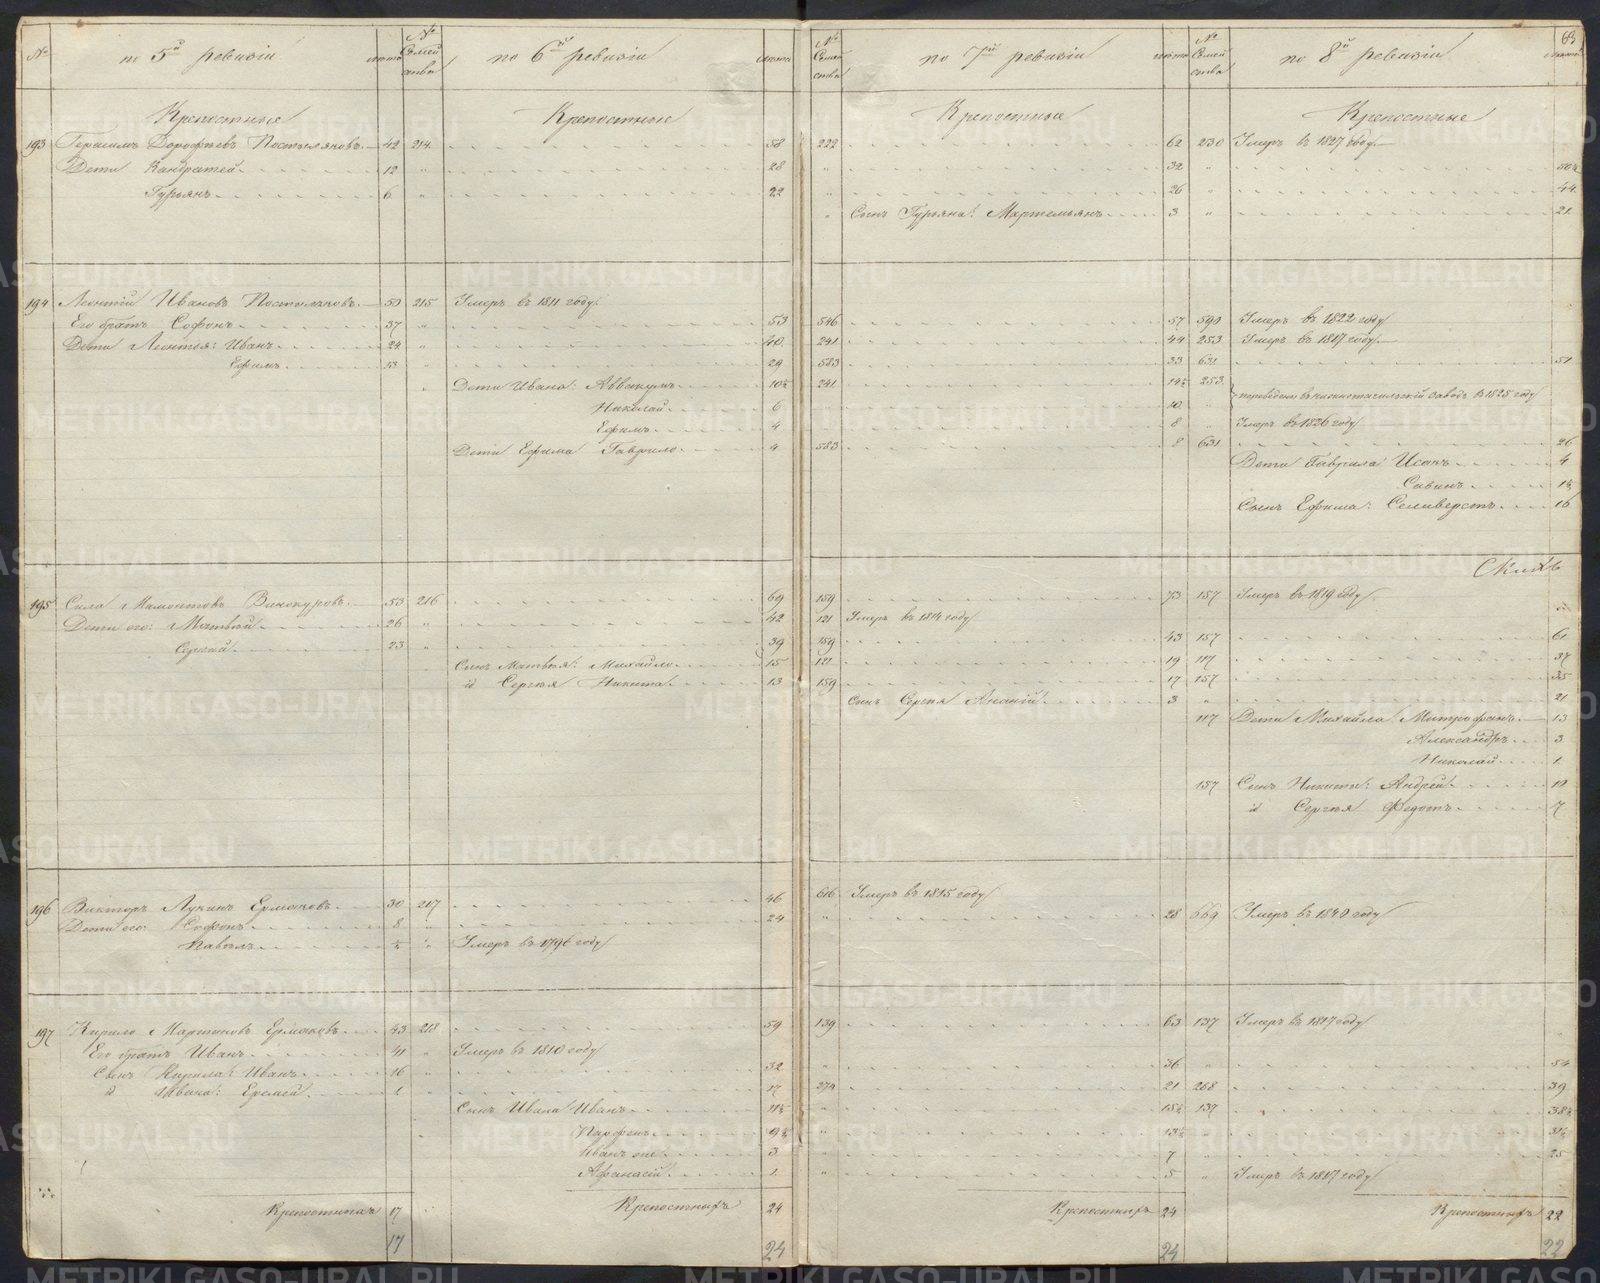 № по 5й ревизіи лѣта № Семейства по 6й ревизіи лѣта № Семейства по 7й ревизіи лѣта № Семейства по 8й ревизіи лѣта 63
Крепостные Крепостные Крепостные Крепостные
193 Герасимъ Дорофѣевъ Постыляковъ 42 214 58 222 62 230 Умеръ въ 1827 году
Дети Кандратей 12 " 28 " 32 " 50½
Гурьянъ 6 " 22 " 26 " 44
" Сынъ Гурьяна: Мартемьянъ 3 " 21
194 Леонтій Ивановъ Постыляковъ 50 215 Умеръ въ 1811 году
Его братъ Софонъ 37 " 53 546 57 590 Умеръ въ 1822 году
Дети Леонтья: Иванъ 24 " 40 241 44 253 Умеръ въ 1817 году
Ефимъ 13 " 29 583 33 631 51
" Дети Ивана: Аввакумъ 10½ 241 14½ 253
Николай 6 10 " переведены въ нижнотагильскій заводъ въ 1825 году
Ефимъ 4 8 " Умеръ въ 1826 году
Дети Ефима Гаврило 4 583 8 631 26
Дети Гаврила Исакъ 4
Савинъ 1½
Сынъ Ефима: Селиверстъ 16
195 Сила Мамонтовъ Винокуровъ 53 216 69 159 73 157 Умеръ въ 1819 году
Дети его: Матвѣй 26 " 42 121 Умеръ въ 1814 году
Сергѣй 23 " 39 159 43 157 61
Сынъ Матвѣя: Михайло 15 121 19 117 37
id Сергѣя Никита 13 159 17 157 35
Сынъ Сергѣя Ананій 3 " 21
117 Дети Михайла Митрофанъ 13
Александръ 3
Николай 1
157 Сынъ Никиты: Андрей 10
id Сергѣя Федотъ 7
196 Викторъ Лукинъ Ермаковъ 30 217 46 616 Умеръ въ 1815 году
Дети его: Софонъ 8 " 24 " 28 669 Умеръ въ 1840 году
Павелъ " Умеръ въ 1796 году
197 Кирило Мартиновъ Ермаковъ 43 218 59 139 63 137 Умеръ въ 1817 году
Его братъ Иванъ 41 " Умеръ въ 1810 году
Сынъ Кирила: Иванъ 16 " 32 " 36 " 54
id Ивана: Еремей 1 " 17 274 21 268 39
Сынъ Ивана Иванъ " 137 38½
Парфенъ
Иванъ 3 " 7 " 25
Афанасій 1 " 5 " Умеръ въ 1817 году
Крепостныхъ 17 Крепостныхъ 24 Крепостныхъ 24 Крепостныхъ 22
17 24 24 22
METRIKI.GASO-URAL.RU